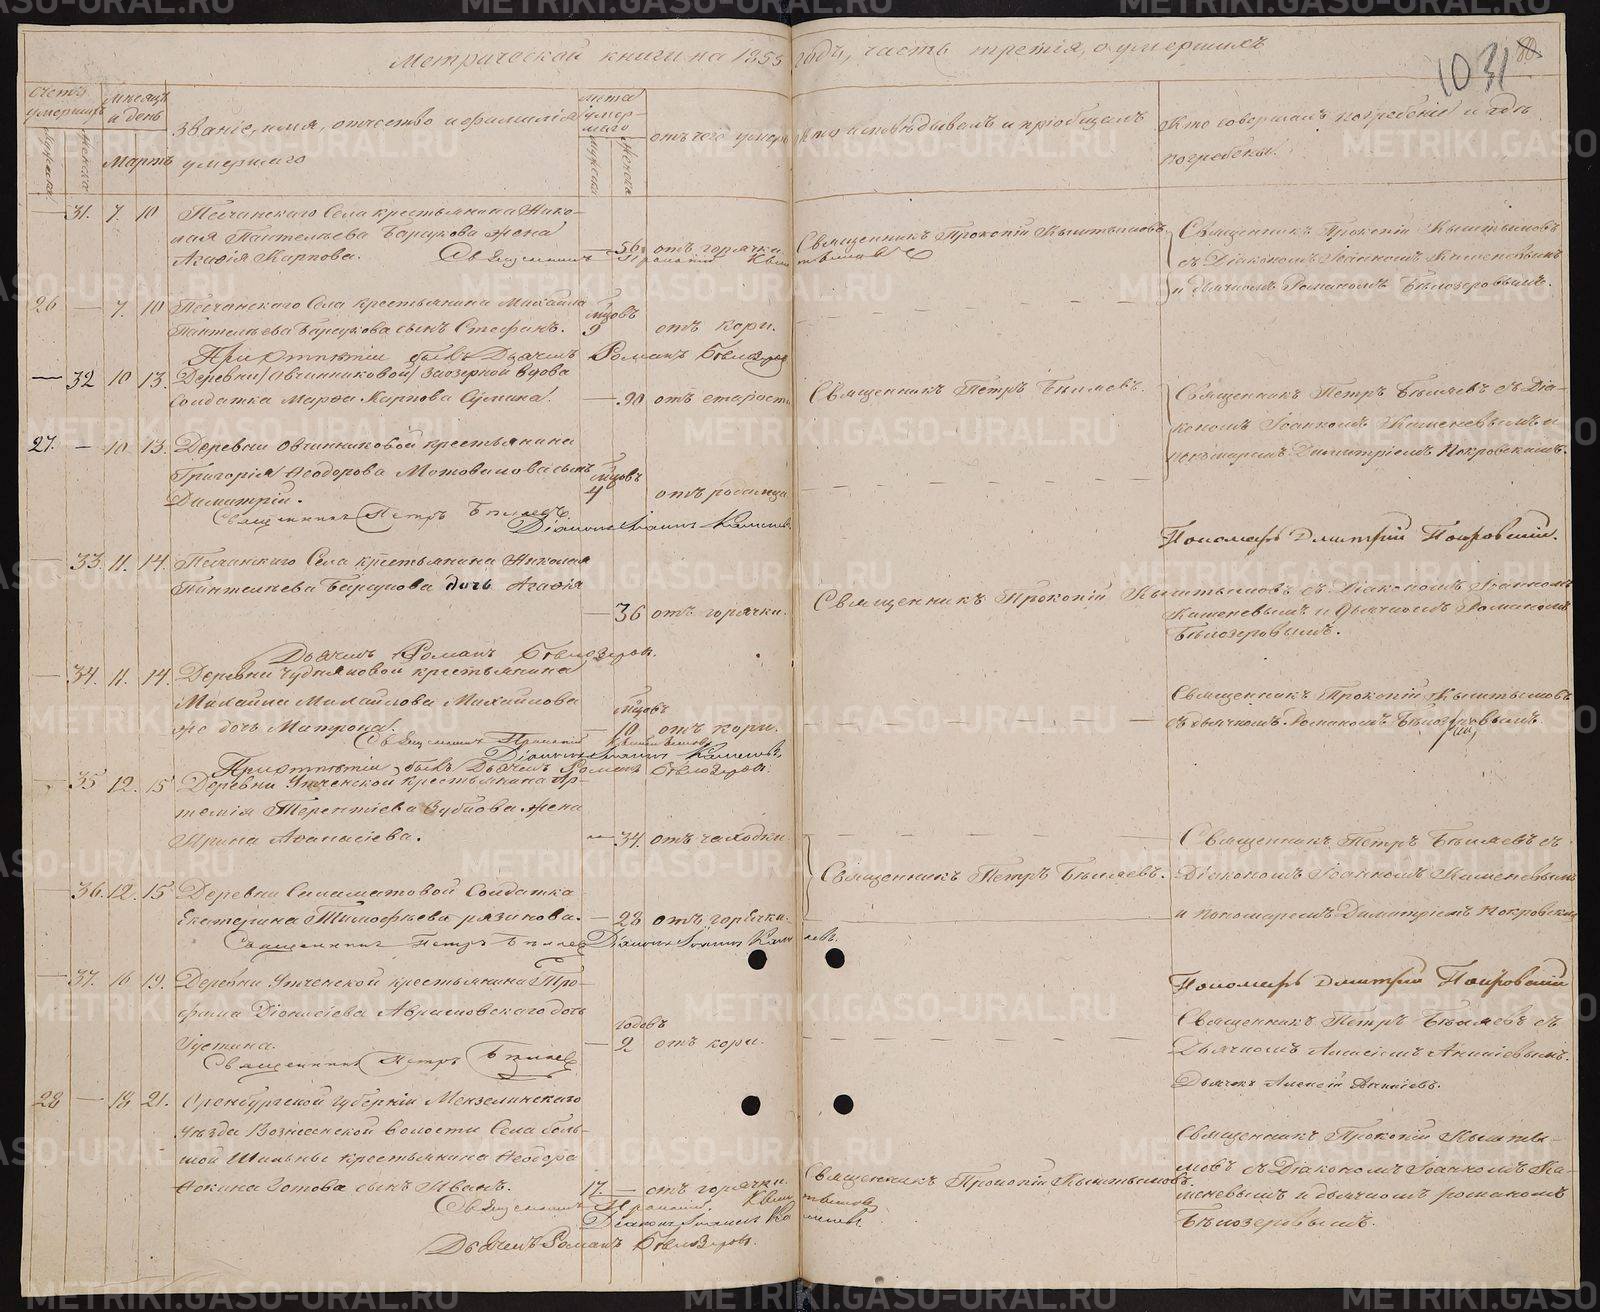 Метрической книги на 1855 годъ, часть третія, о умершихъ
1031
Счетъ умершихъ
Мужеска
Женска
Мѣсяцъ и день
Мартъ
Званіе, имя, отчество и фамилія умершаго
Лета умершаго
Мужска
Женска
отъ чего умеръ
Кто исповѣдывалъ и пріобщалъ
Кто совершалъ погребеніе и гдѣ погребены.
— 31. 7. 10 Песчанскаго Села крестьянина Нико-
лая Пантелѣева Барцукова жена
Агафія Карпова. — 56 отъ горячки
Священникъ Прокопій Кыштымовъ
Священникъ Прокопій Кыштымовъ
Священникъ Прокопій Кыштымовъ
съ Діакономъ Іоанномъ Каменевымъ
и дьячкомъ Романомъ Бѣлозеровымъ.
26 — 7. 10 Песчанскаго Села крестьянина Михаила
Пантелѣева Барцукова сынъ Стефанъ. 9 отъ кори.
При отпѣтіи былъ Дьячекъ Романъ Бѣлозеровъ
— 32 10 13. Деревни Овчинниковой Заозерной вдова
Солдатка Марфа Карпова Сумина. — 90 отъ старости
Священникъ Петръ Бѣляевъ.
Священникъ Петръ Бѣляевъ съ Діа-
кономъ Іоанномъ Каменевымъ и
пономаремъ Димитріемъ Покровскимъ.
27. — 10 13. Деревни Овчинниковой крестьянина
Григорія Феодорова Мотовилова сынъ
Димитрій. 4 отъ родимца
Священникъ Петръ Бѣляевъ.
Діаконъ Іоаннъ Каменевъ
Пономарь Дмитрій Покровскій.
— 33. 11. 14. Песчанскаго Села крестьянина Николая
Пантелѣева Барцукова дочь Агафія
— 36 отъ горячки.
Священникъ Прокопій Кыштымовъ съ Діакономъ Іоанномъ
Каменевымъ и дьячкомъ Романомъ
Бѣлозеровымъ.
Дьячекъ Романъ Бѣлозеровъ.
— 34. 11. 14. Деревни Чудняковой крестьянина
Михаила Михайлова Михайлова
же дочь Матрона. 10 отъ кори.
Священникъ Прокопій Кыштымовъ
Діаконъ Іоаннъ Каменевъ
Священникъ Прокопій Кыштымовъ
съ дьячкомъ Романомъ Бѣлозеровымъ.
При отпѣтіи былъ Дьячекъ Романъ Бѣлозеровъ.
— 35 12. 15 Деревни Утченской крестьянина Ар-
темія Терентіева Зубкова жена
Ирина Афанасіева. — 34. отъ чахотки
Священникъ Петръ Бѣляевъ.
Священникъ Петръ Бѣляевъ съ
Діакономъ Іоанномъ Каменевымъ
и пономаремъ Димитріемъ Покровскимъ
— 36. 12. 15 Деревни Саламатовой Солдатка
Екатерина Тимофѣева рязанова. — 28 отъ горячки.
Священникъ Петръ Бѣляевъ
Діаконъ Іоаннъ Каменевъ.
Пономарь Дмитрій Покровскій
— 37. 16 19. Деревни Утченской крестьянина Тро-
фима Діонисіева Аврамовскаго дочь
Іустина. годовъ — 2. отъ кори.
Священникъ Петръ Бѣляевъ
Священникъ Петръ Бѣляевъ съ
Дьячкомъ Алексіемъ Ананіевымъ.
Дьячекъ Алексей Ананіевъ.
28 — 18 21. Оренбургской Губерніи Мензелинскаго
уѣзда Вознесенской волости Села боль-
шой Шильны крестьянина Феодора
Фокина Зотова сынъ Иванъ. 17. — отъ горячки
Священникъ Прокопій Кыштымовъ
Діаконъ Іоаннъ Каменевъ.
Дьячекъ Романъ Бѣлозеровъ.
Священникъ Прокопій Кыштымовъ.
Священникъ Прокопій Кышты-
мовъ съ Діакономъ Іоанномъ Ка-
меневымъ и дьячкомъ романомъ
Бѣлозеровымъ.
METRIKI.GASO-URAL.RU